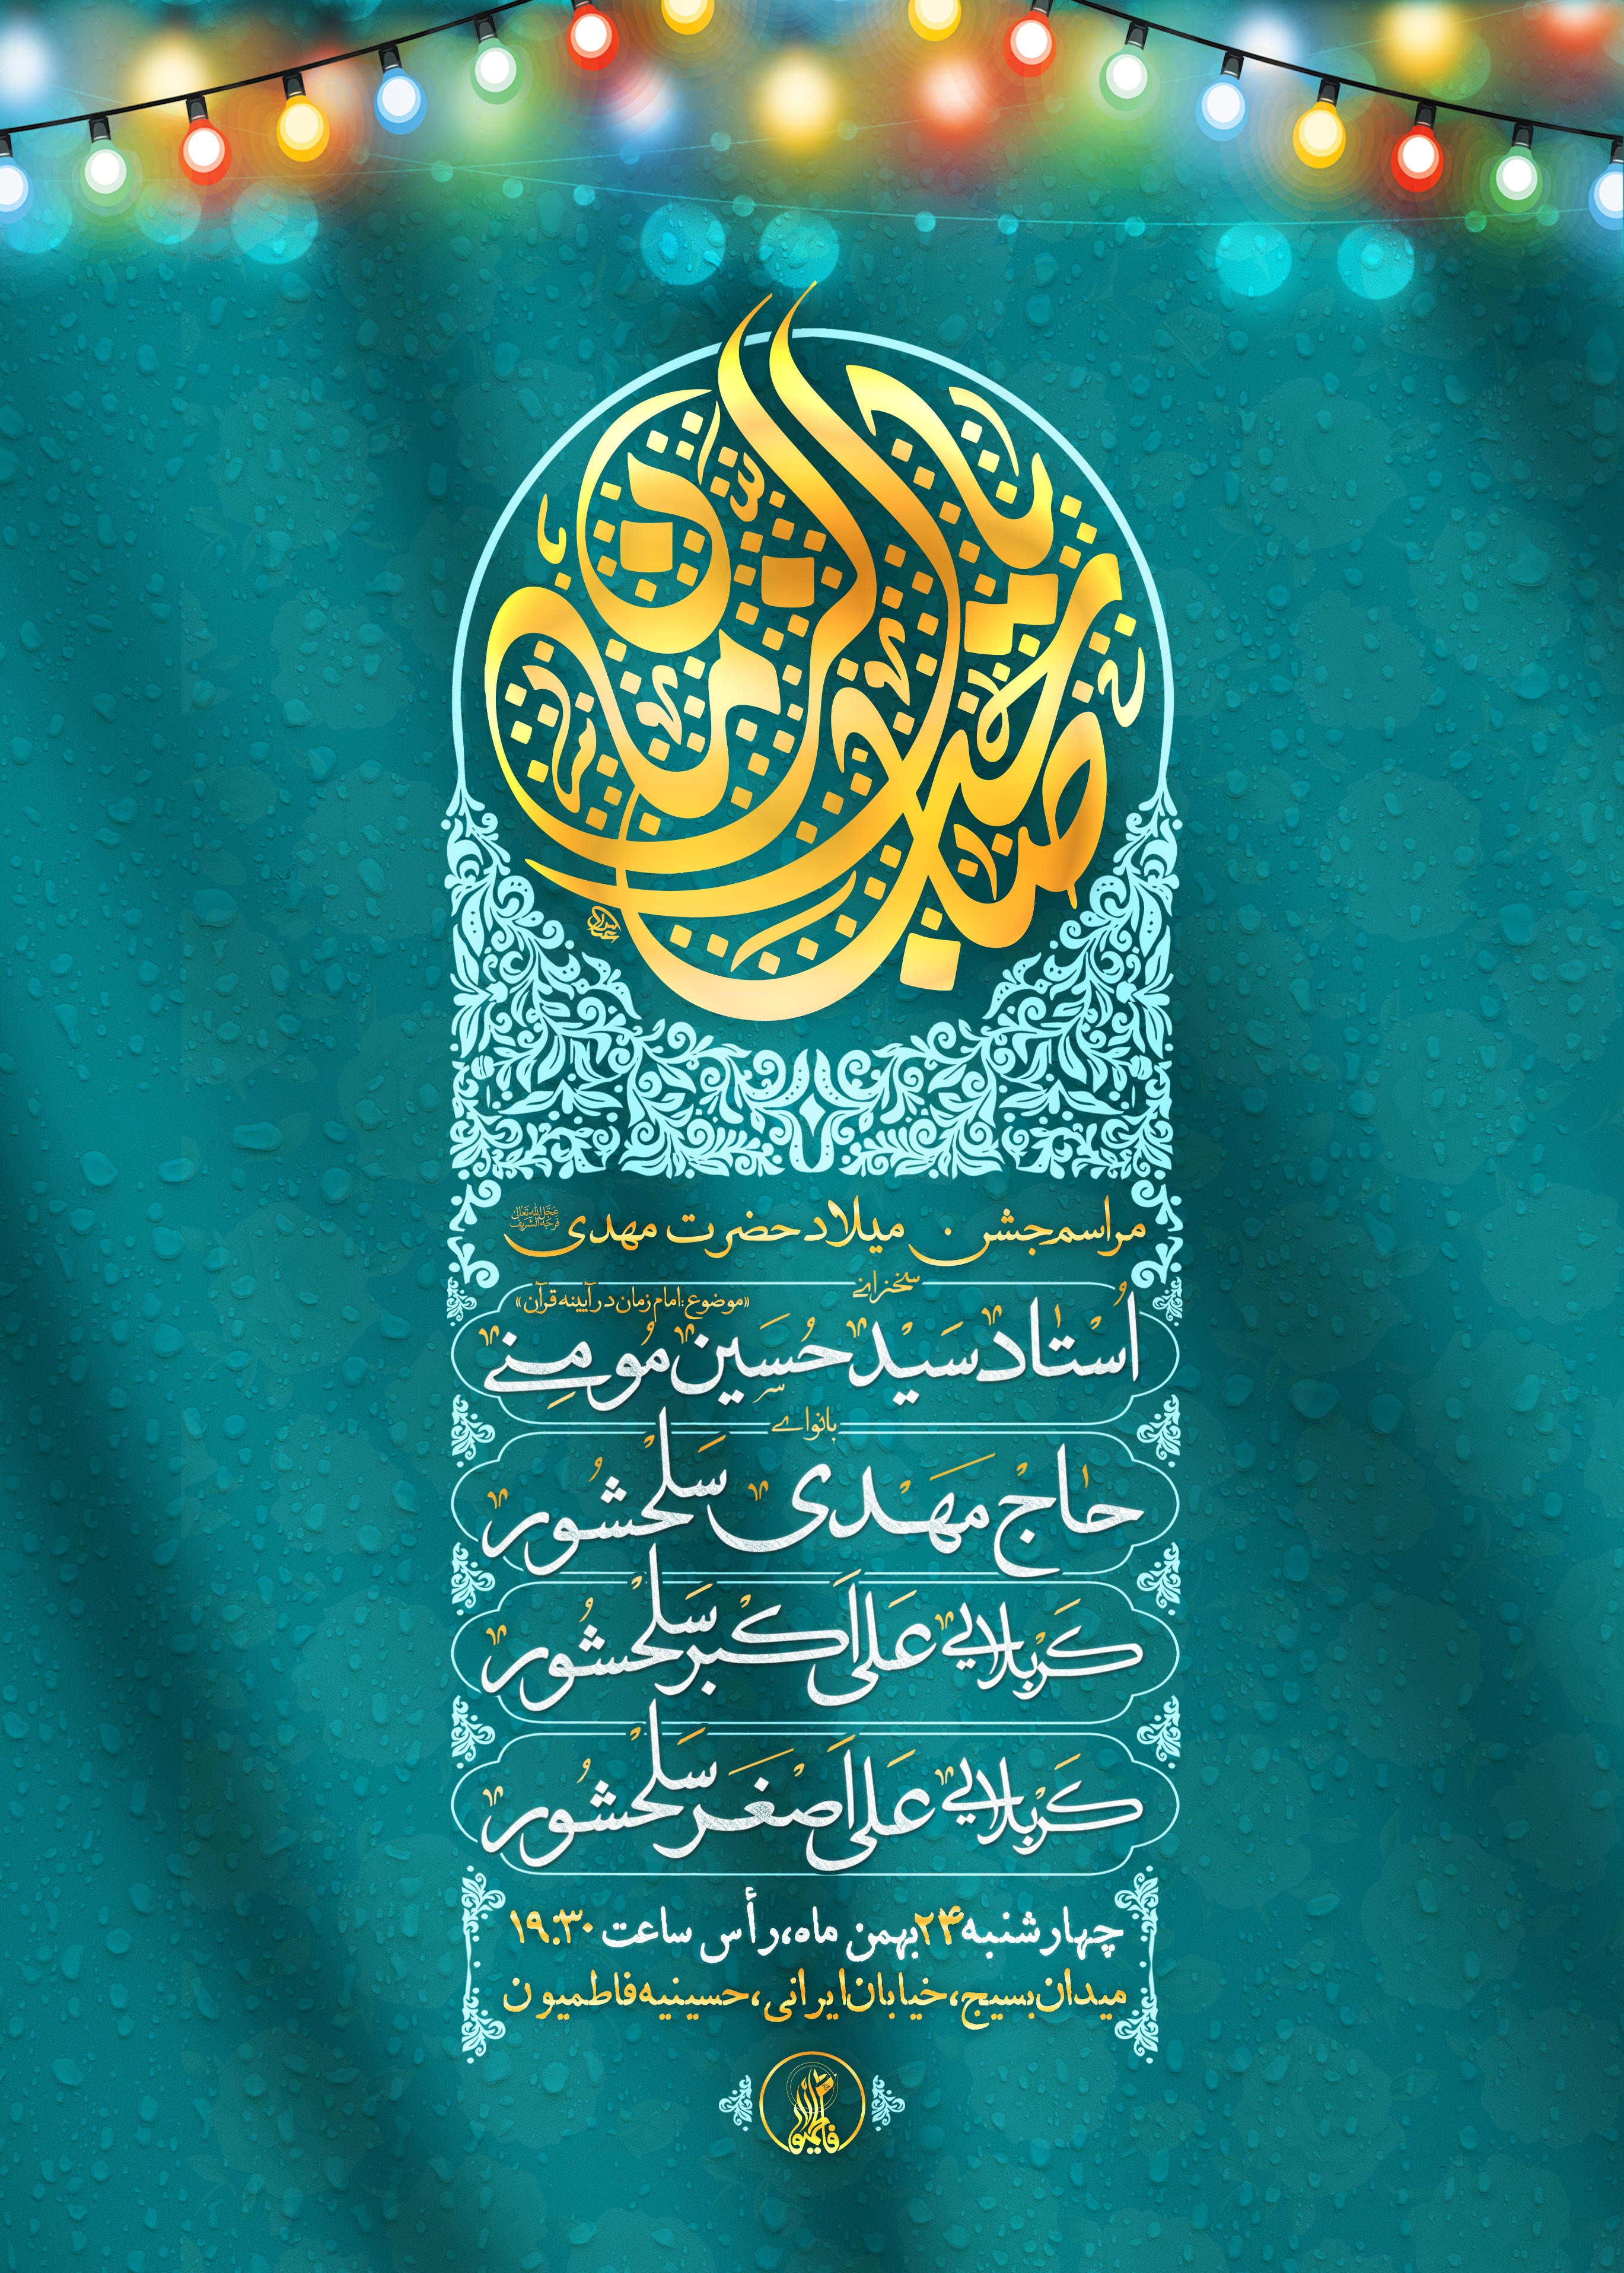 یا صاحب الزمان
مراسم جشن میلاد حضرت مهدی عجل الله تعالی فرجه الشریف
سخنرانے
«موضوع: امام زمان در آیینه قرآن»
اُستاد سَید حُسَین مُومِنے
بانواے
حاج مَهدی سَلحشُور
کَربلایی عَلی اَکبر سَلحشُور
کَربلایی عَلی اَصغَر سَلحشُور
چهارشنبه ۲۴ بهمن ماه، رأس ساعت ۱۹:۳۰
میدان بسیج، خیابان ایرانی، حسینیه فاطمیون
فاطمیون